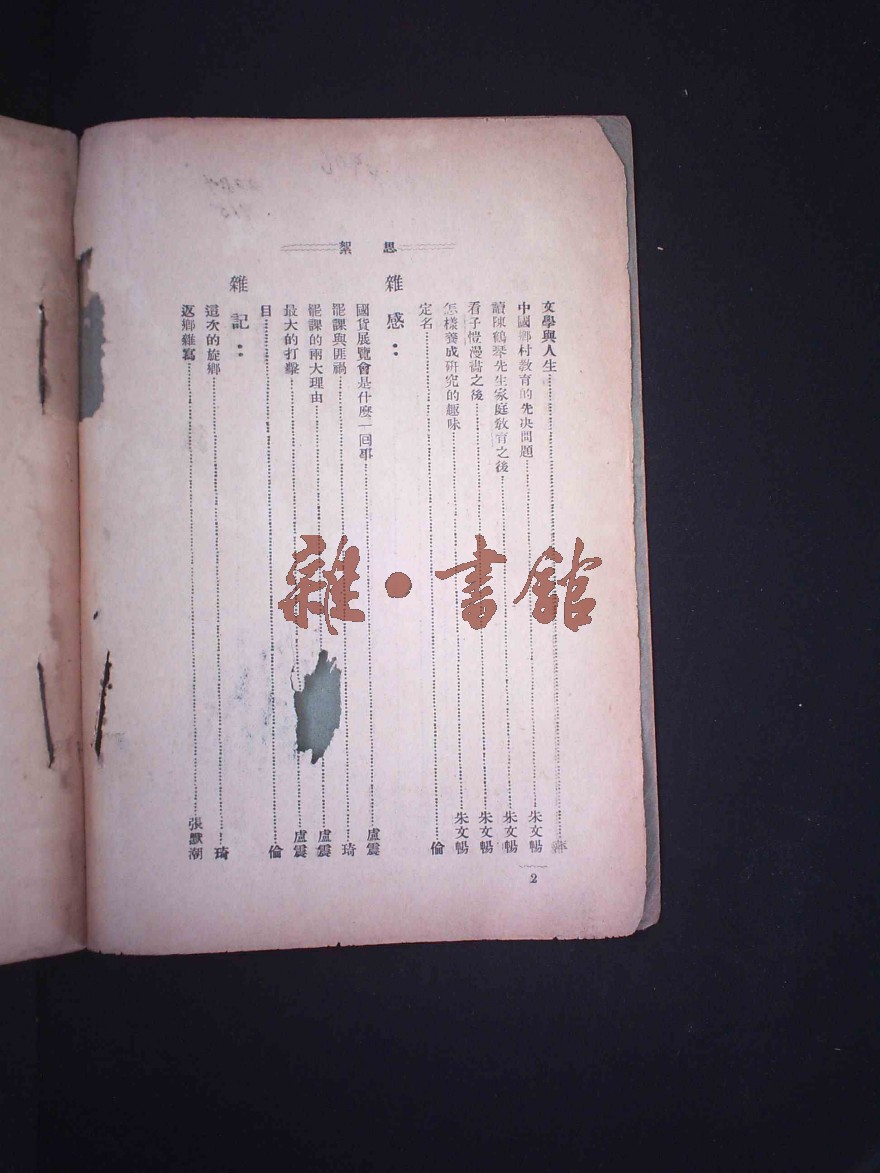 思絮
文學與人生……萍
中國鄉村教育的先决問題……朱文暢
讀陳鶴琴先生家庭敎育之後……朱文暢
看子愷漫畵之後……朱文暢
怎樣養成硏究的趣味……朱文暢
定名……倫
雜感：
國貨展覽會是什麼一回事……盧震
罷課與匪禍……琦
罷課的兩大理由……盧震
最大的打擊……盧震
目……倫
雜記：
這次的旋鄉……琦
返鄉雜寫……張默潮
2
雜·書館